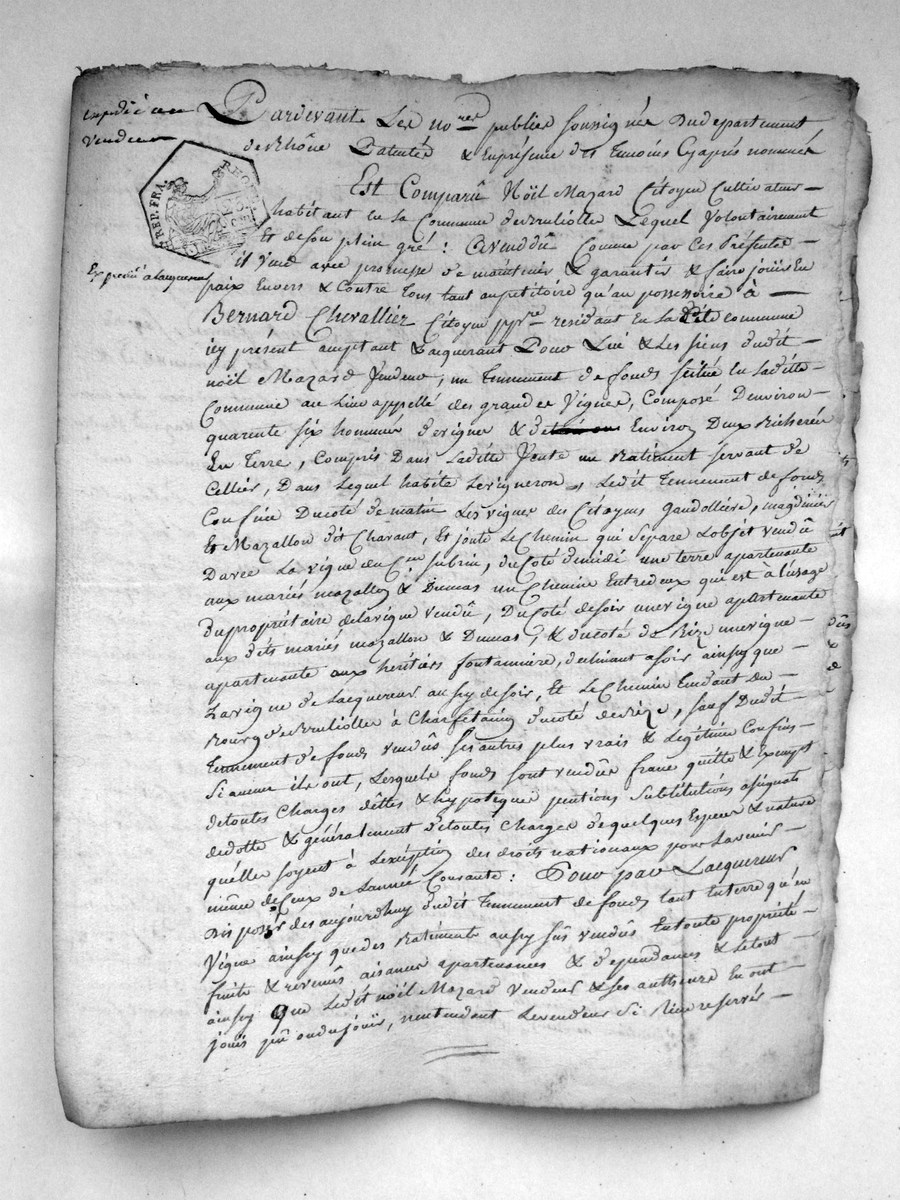 expédié au
vendeur
Pardevant Les no.res publics soussignés du departement
de Rhône Patentés & En présence des temoins Cyaprès nommés
REP. FRA.
Est Comparû Noël Mazard Citoyen Cultivateur
habitant en la Commune de Lequel Volontairement
Et de son plein gré : A vendû Comme par Ces Présentes
il Vend avec promesse de maintenir & garantir & faire jouir En
Exprémé à lacquereur
paix Envers & Contre tous tant au petitoire qu'au possessoire à
Bernard Chevallier Citoyen p.re residant En la dite commune
icy présent acceptant & acquerant Pour Lui & Les siens dudit
noël Mazard Vendeur, un tennement de fonds scitué En Laditte
Commune au Lieu appellé des grandes Vignes, Composé D'environ
quarente six hommées de vigne & de Environ Deux Bicherées
En Terre, Compris Dans Laditte Vente un Batiment servant de
Cellier, Dans Lequel habite Le vigneron, Ledit Tennement de fonds
Confiné Du coté de matin Les vignes des Citoyens
Et Mazallon dit Charant, Et joute Le Chemin qui separe L'objet vendû
D'avec La vigne du C.en Subrin, du Coté de midi une terre apartenante
aux mariés mazallon & Dumas un Chemin Entredeux qui est à L'usage
Du propriétaire de la vigne Vendûe, Du Coté de soir une vigne apartenante
aux dits mariés mazallon & Dumas, & du coté de Bize une vigne
apartenante aux héritiers fontanniere, declinant a soir ainsy que
La vigne de Lacquereur aussy de soir, Et Le Chemin Tendant Du
Bourg de à Du coté de Bize, sauf Dudit
Tennement de fonds vendûs ses autres plus vrais & Legitimes Confins
Si aucuns ils ont, Lesquels fonds sont vendûs francs quittes & Exempts
de toutes Charges dêttes & hypoteques pentions Substitutions assignats
de dotte & généralement de toutes Charges de quelques Especes & nature
qu'elles soyent à L'exception des droits nationaux pour Lavenir
même de Ceux de L'année Courante : Pour par Lacquereur
Disposer des aujourd'huy dudit Tennement de fonds tant En terre qu'en
Vigne ainsy que des Batiments aussy sûs vendûs En toute propriété
fruits & revenûs aisances apartenances & dépendances & Le tout
ainsy Que Ledit noël Mazard Vendeur & ses autheurs En ont
jouis pû ou dû jouir, n'entendant Le vendeur S'i Rien reservér